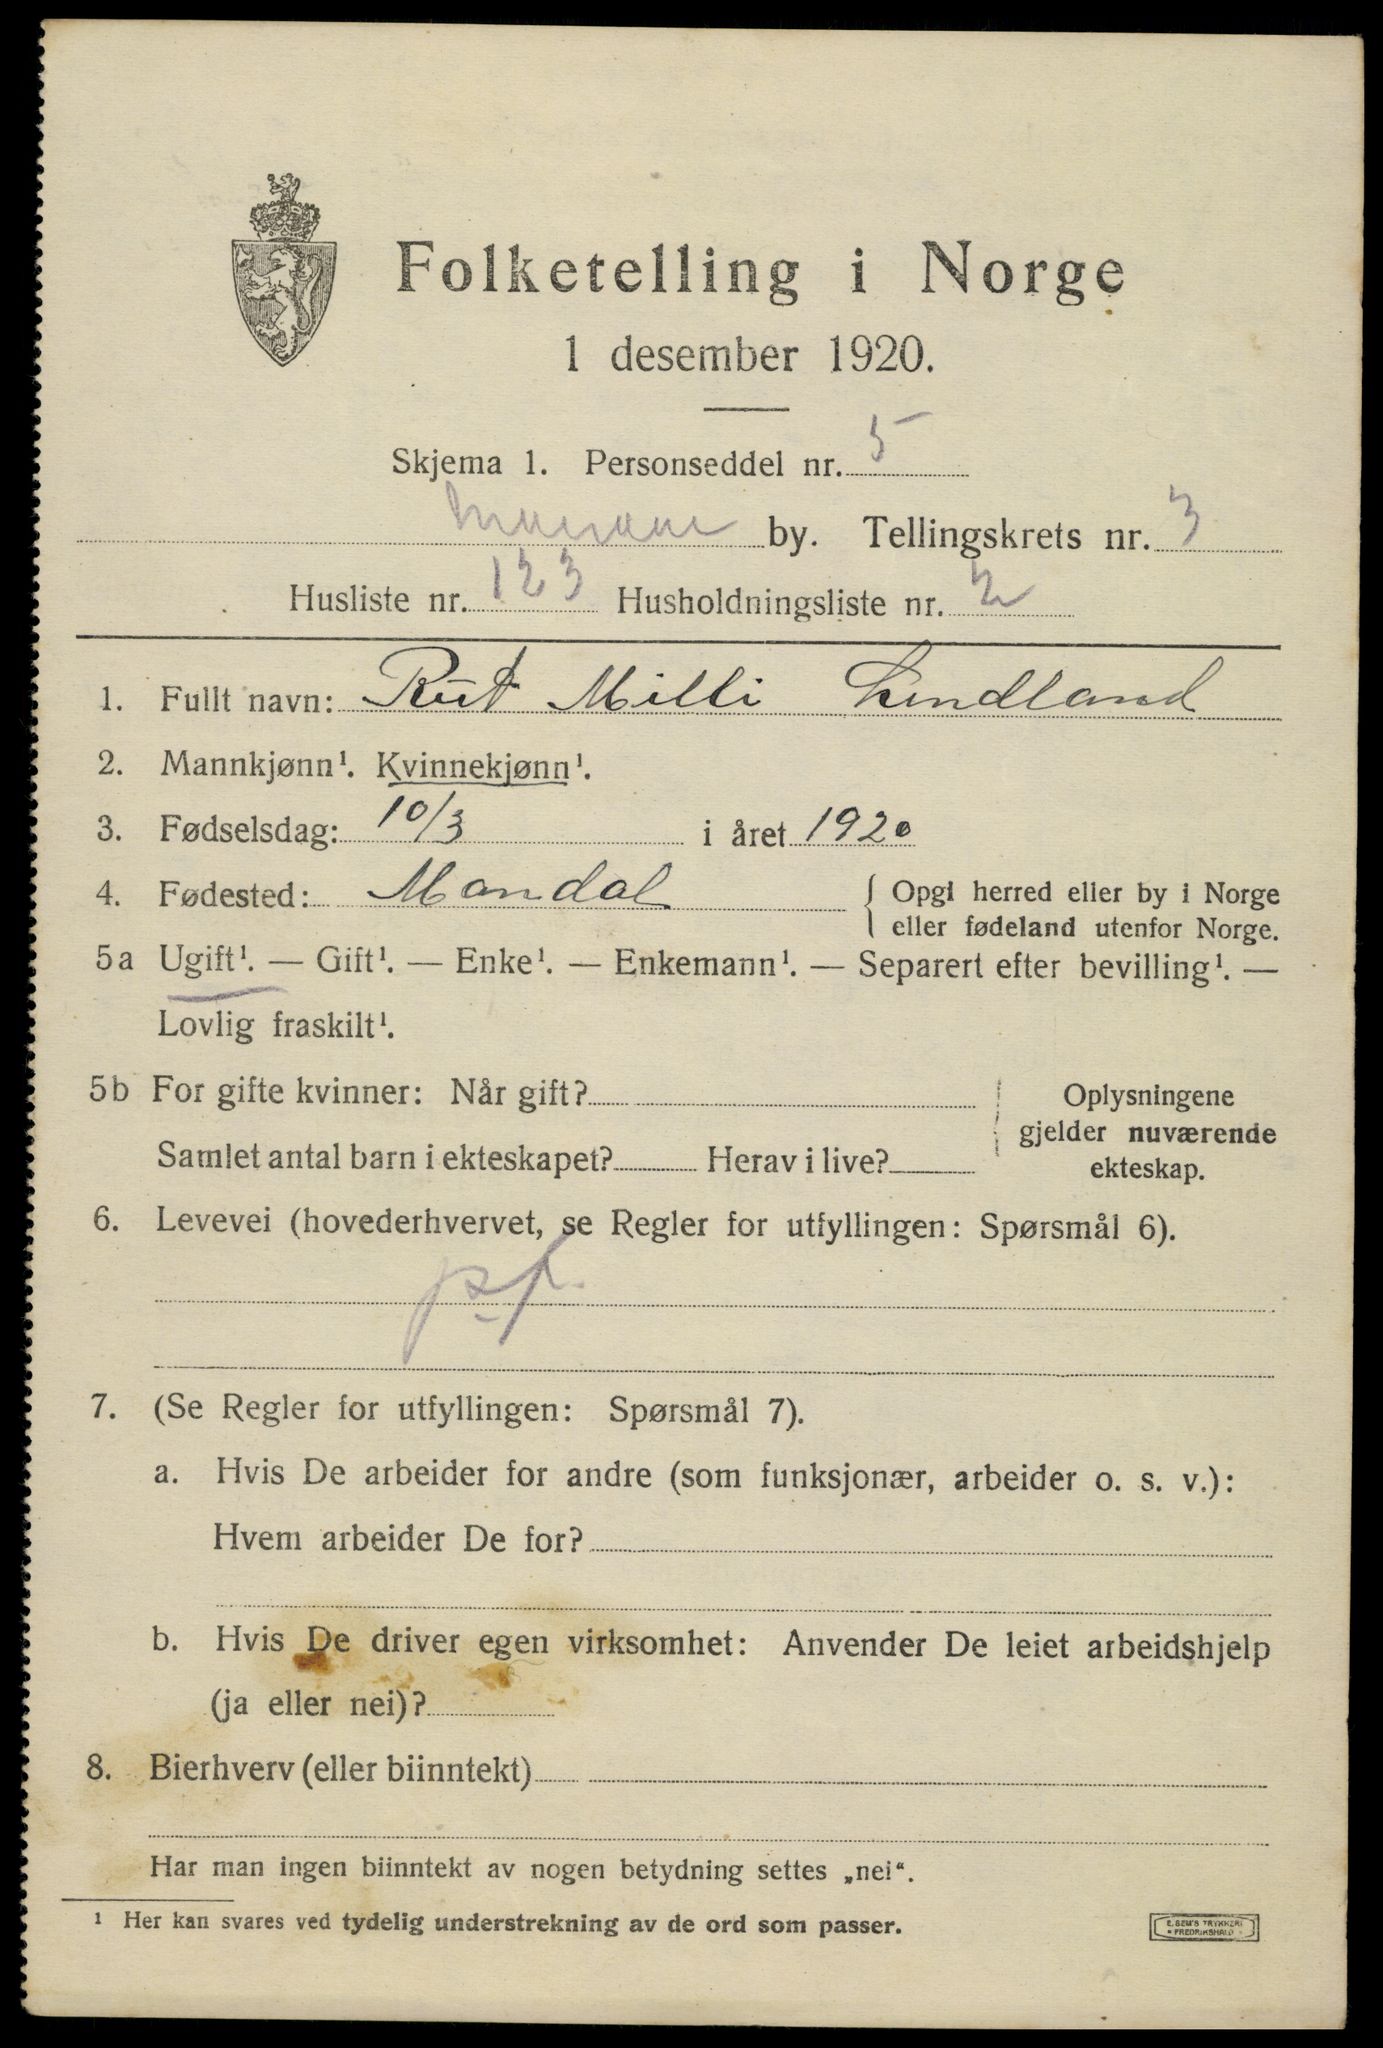 Folketelling i Norge
1 desember 1920.
Skjema 1. Personseddel nr. 5
by. Tellingskrets nr. 3
Husliste nr. 123 Husholdningsliste nr. 2
1. Fullt navn: Rut Milli Lindland
2. Mannkjønn¹. Kvinnekjønn¹.
3. Fødselsdag: 10/3 i året 1920
4. Fødested: Mandal { Opgi herred eller by i Norge
eller fødeland utenfor Norge.
5a Ugift¹. — Gift¹. — Enke¹. — Enkemann¹. — Separert efter bevilling¹. —
Lovlig fraskilt¹.
5b For gifte kvinner: Når gift?
Samlet antal barn i ekteskapet? Herav i live?
Oplysningene
gjelder nuværende
ekteskap.
6. Levevei (hovederhvervet, se Regler for utfyllingen: Spørsmål 6).
7. (Se Regler for utfyllingen: Spørsmål 7).
a. Hvis De arbeider for andre (som funksjonær, arbeider o. s. v.):
Hvem arbeider De for?
b. Hvis De driver egen virksomhet: Anvender De leiet arbeidshjelp
(ja eller nei)?
8. Bierhverv (eller biinntekt)
Har man ingen biinntekt av nogen betydning settes „nei“.
¹ Her kan svares ved tydelig understrekning av de ord som passer.
E. SEM'S TRYKKERI
FREDRIKSHALD